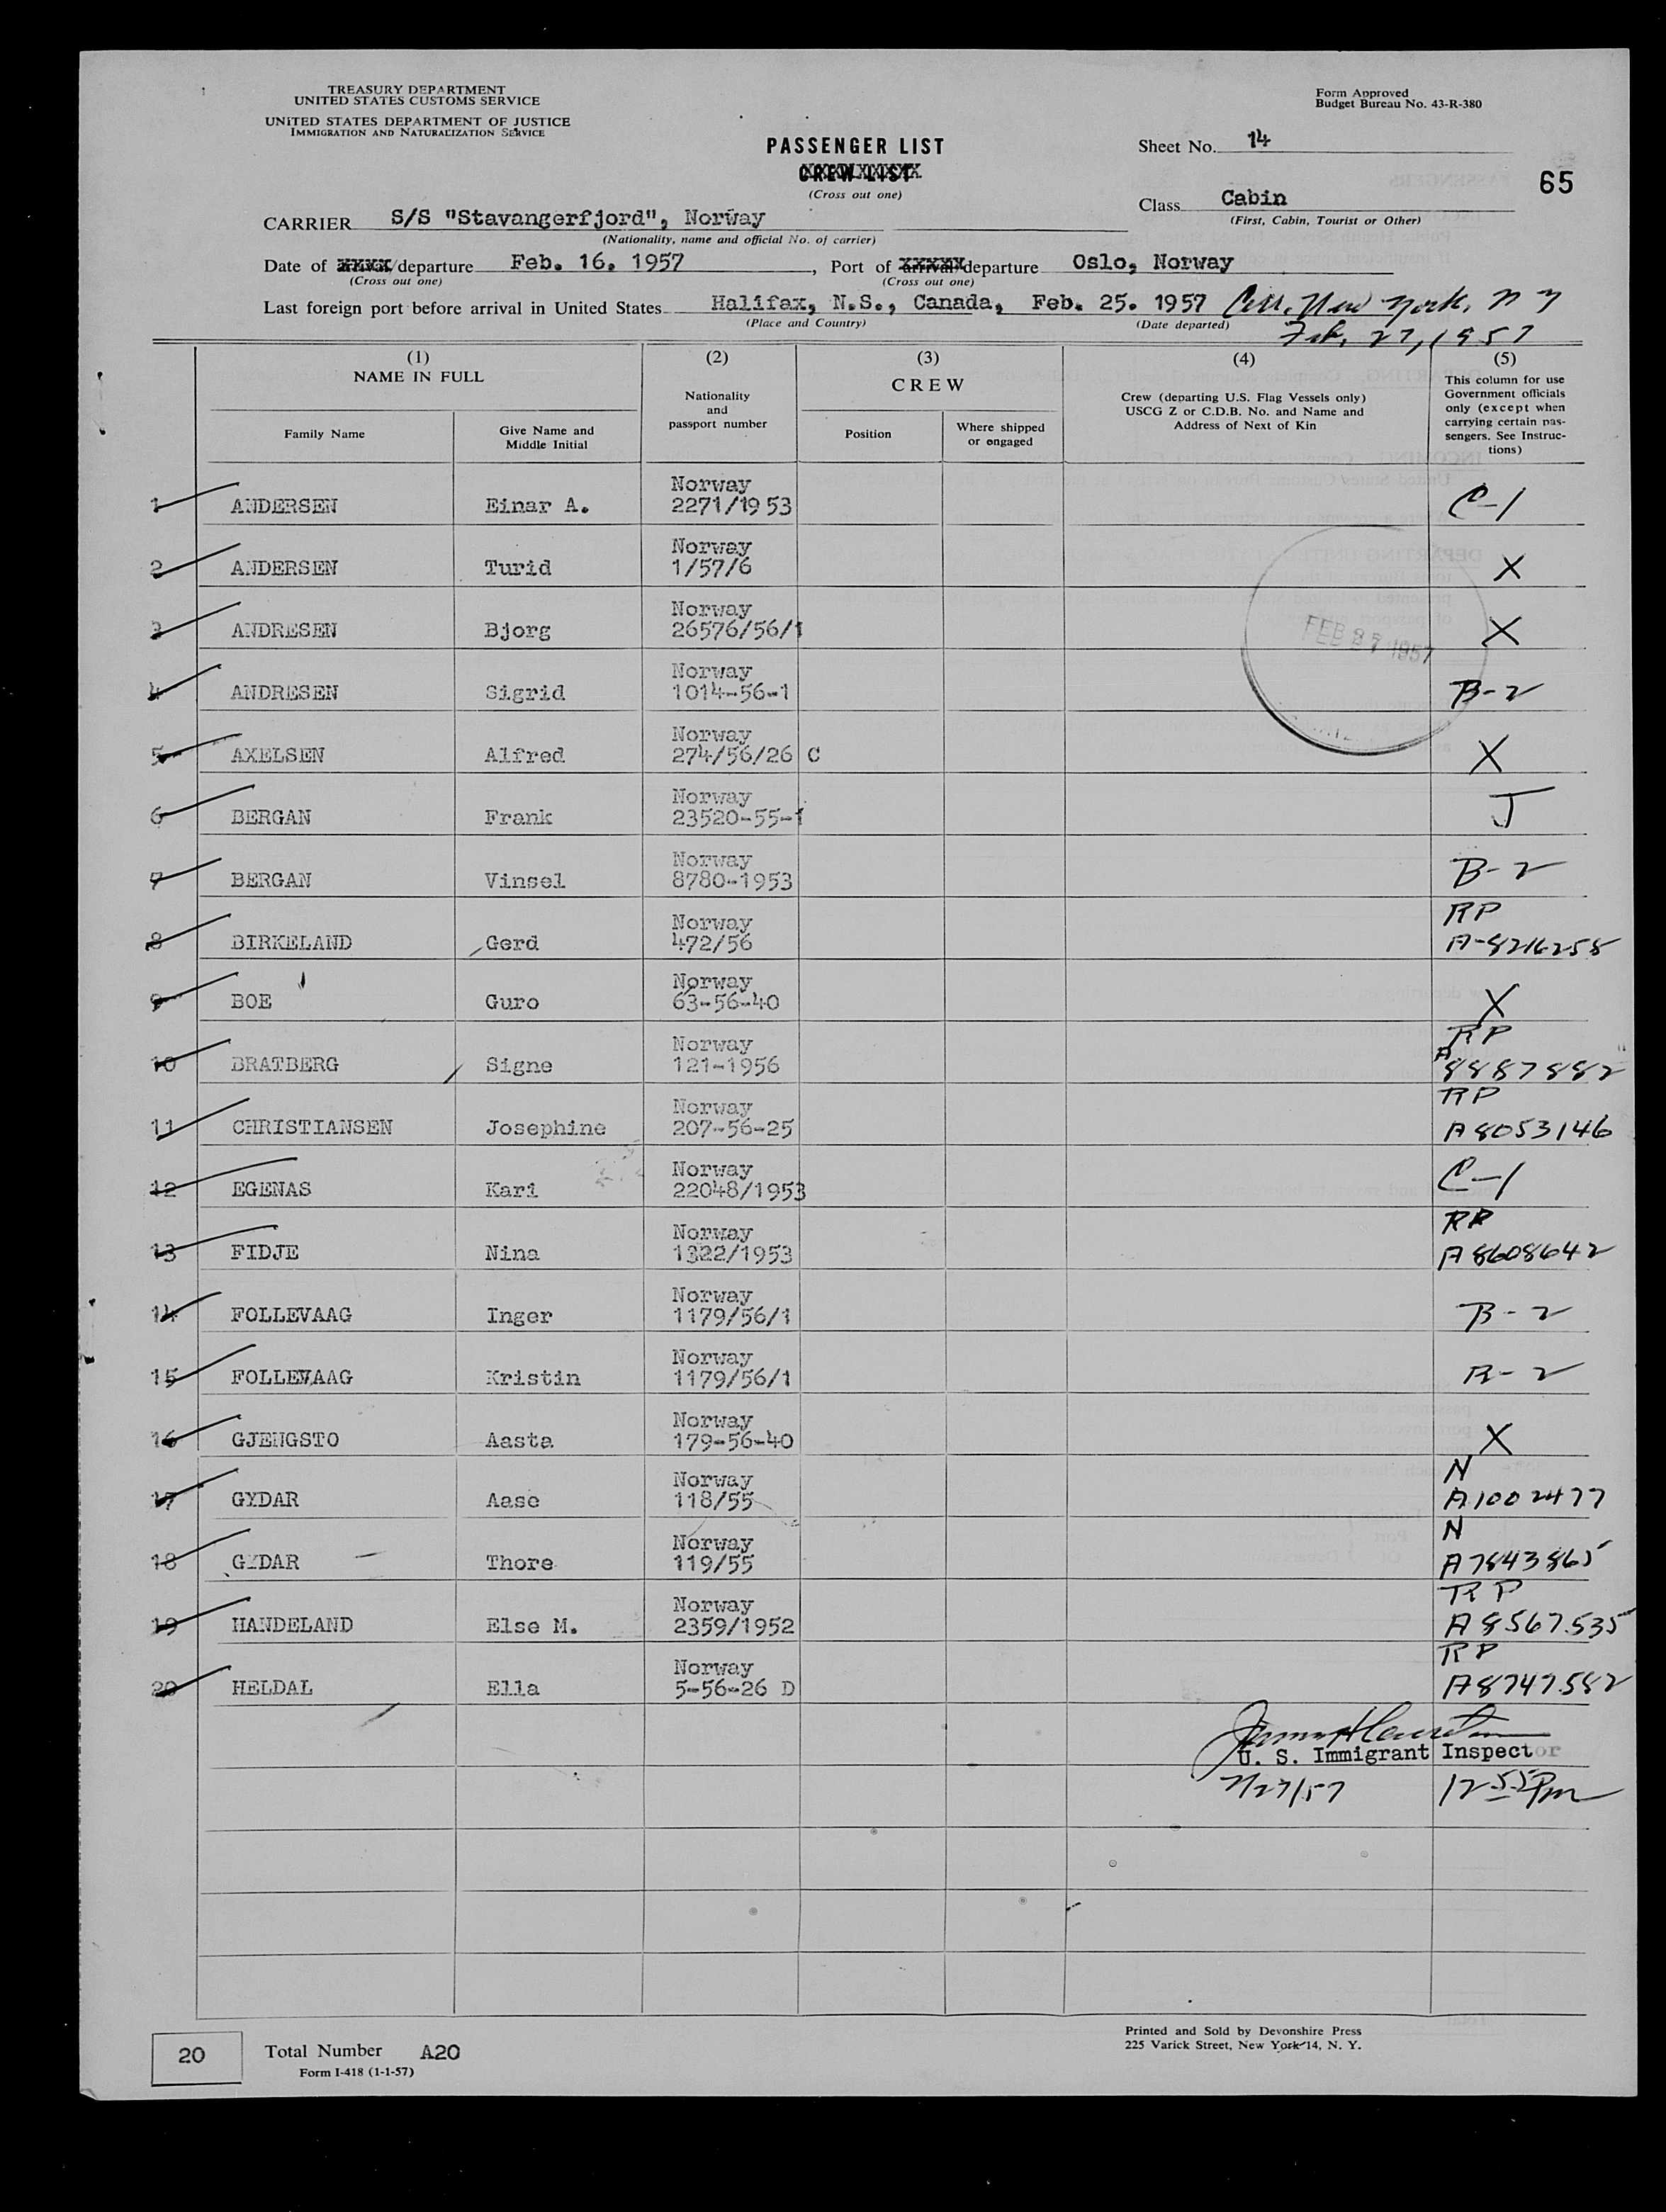 TREASURY DEPARTMENT
UNITED STATES CUSTOMS SERVICE
UNITED STATES DEPARTMENT OF JUSTICE
IMMIGRATION AND NATURALIZATION SERVICE
Form Approved
Budget Bureau No. 43-R-380
PASSENGER LIST
CREW LIST
(Cross out one)
Sheet No. 14
65
Class Cabin
(First, Cabin, Tourist or Other)
CARRIER S/S "Stavangerfjord", Norway
(Nationality, name and official No. of carrier)
Date of arrival/departure Feb. 16. 1957, Port of arrival/departure Oslo, Norway
(Cross out one) (Cross out one)
Last foreign port before arrival in United States Halifax, N.S., Canada, Feb. 25. 1957 Arr. New York, N Y
(Place and Country) (Date departed) Feb. 27, 1957
(1) (2) (3) (4) (5)
NAME IN FULL
Family Name
Give Name and
Middle Initial
Nationality
and
passport number
CREW
Position
Where shipped
or engaged
Crew (departing U.S. Flag Vessels only)
USCG Z or C.D.B. No. and Name and
Address of Next of Kin
This column for use
Government officials
only (except when
carrying certain pas-
sengers. See Instruc-
tions)
Norway
1 ANDERSEN Einar A. 2271/1953 C-1
Norway
2 ANDERSEN Turid 1/57/6 X
Norway
3 ANDRESEN Bjorg 26576/56/1 X
FEB 27 1957
Norway
4 ANDRESEN Sigrid 1014-56-1 B-2
Norway
5 AXELSEN Alfred 274/56/26 C X
Norway
6 BERGAN Frank 23520-55-1 J
Norway
7 BERGAN Vinsel 8780-1953 B-2
Norway RP
8 BIRKELAND Gerd 472/56 A-8216258
Norway
9 BOE Guro 63-56-40 X
Norway RP
10 BRATBERG Signe 121-1956 A 8887882
Norway RP
11 CHRISTIANSEN Josephine 207-56-25 A8053146
Norway
12 EGENAS Kari 22048/1953 C-1
Norway RP
13 FIDJE Nina 1322/1953 A8608642
Norway
14 FOLLEVAAG Inger 1179/56/1 B-2
Norway
15 FOLLEVAAG Kristin 1179/56/1 B-2
Norway
16 GJENGSTO Aasta 179-56-40 X
Norway N
17 GYDAR Aase 118/55 A1002477
Norway N
18 GYDAR Thore 119/55 A7843865
Norway RP
19 HANDELAND Else M. 2359/1952 A8567535
Norway RP
20 HELDAL Ella 5-56-26 D A8747582
U. S. Immigrant Inspector
2/27/57 12 55 Pm
20
Total Number A20
Form I-418 (1-1-57)
Printed and Sold by Devonshire Press
225 Varick Street, New York 14, N. Y.